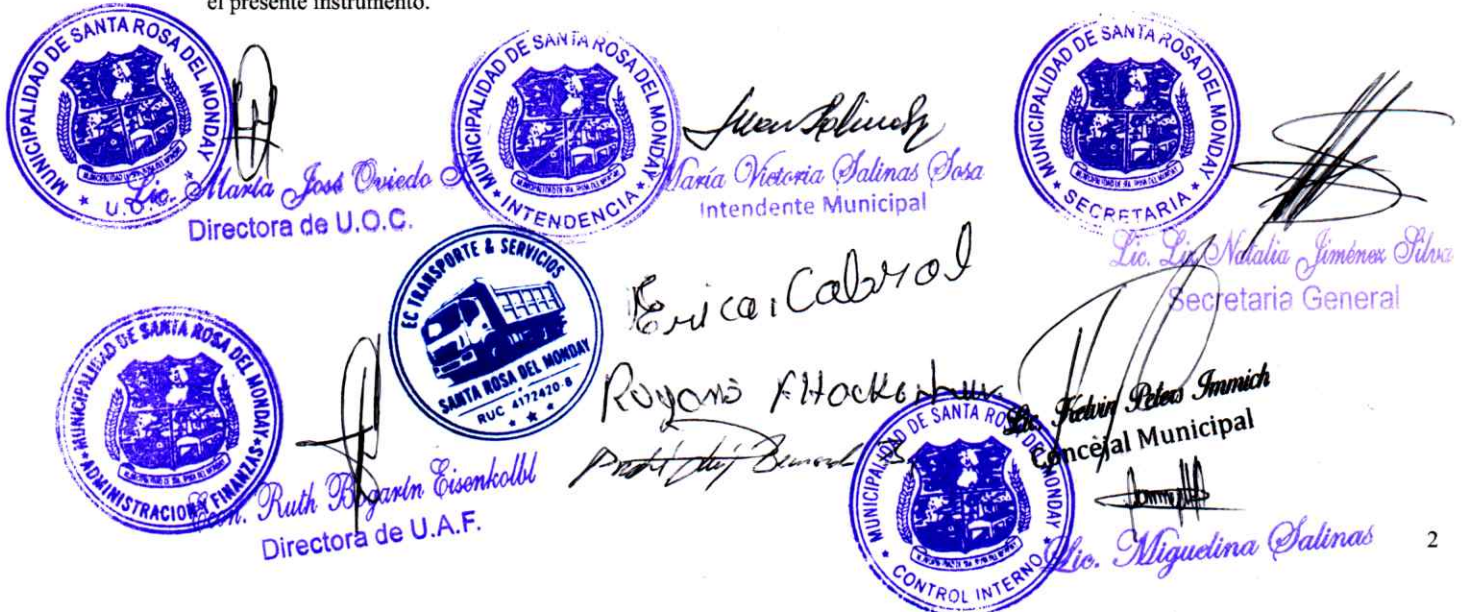 el presente instrumento.
MUNICIPALIDAD DE SANTA ROSA DEL MONDAY
★ U.O.C. ★
Lic. María José Oviedo S
Directora de U.O.C.
MUNICIPALIDAD DE SANTA ROSA DEL MONDAY
★ INTENDENCIA ★
María Victoria Salinas Sosa
Intendente Municipal
MUNICIPALIDAD DE SANTA ROSA DEL MONDAY
★ SECRETARIA ★
Lic. Liz Natalia Jiménez Silva
Secretaria General
EC TRANSPORTE & SERVICIOS
SANTA ROSA DEL MONDAY
RUC 4172420-8
Erica Cabrol
MUNICIPALIDAD DE SANTA ROSA DEL MONDAY
★ ADMINISTRACION Y FINANZAS ★
Econ. Ruth Bogarín Eisenkolbl
Directora de U.A.F.
Lic. Kelvin Peters Immich
Concejal Municipal
MUNICIPALIDAD DE SANTA ROSA DEL MONDAY
★ CONTROL INTERNO
Lic. Miguelina Salinas
2